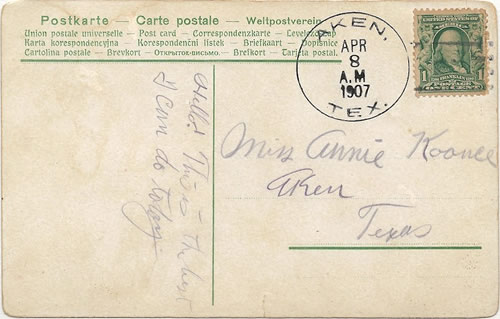 Postkarte — Carte postale — Weltpostverein
Union postale universelle — Post card — Correspondenzkarte — Levelezőlap
Karta korespondencyjna — Korespondenční lístek — Briefkaart — Dopisnice
Cartolina postale — Brevkort — Открытое-письмо. — Brefkort — Tarjeta postal.
AKEN,
APR
8
A.M
1907
TEX.
1
1
ONE CENT
Hello! This is The best
I Can do today
Miss Annie Koonce
Aken
Texas